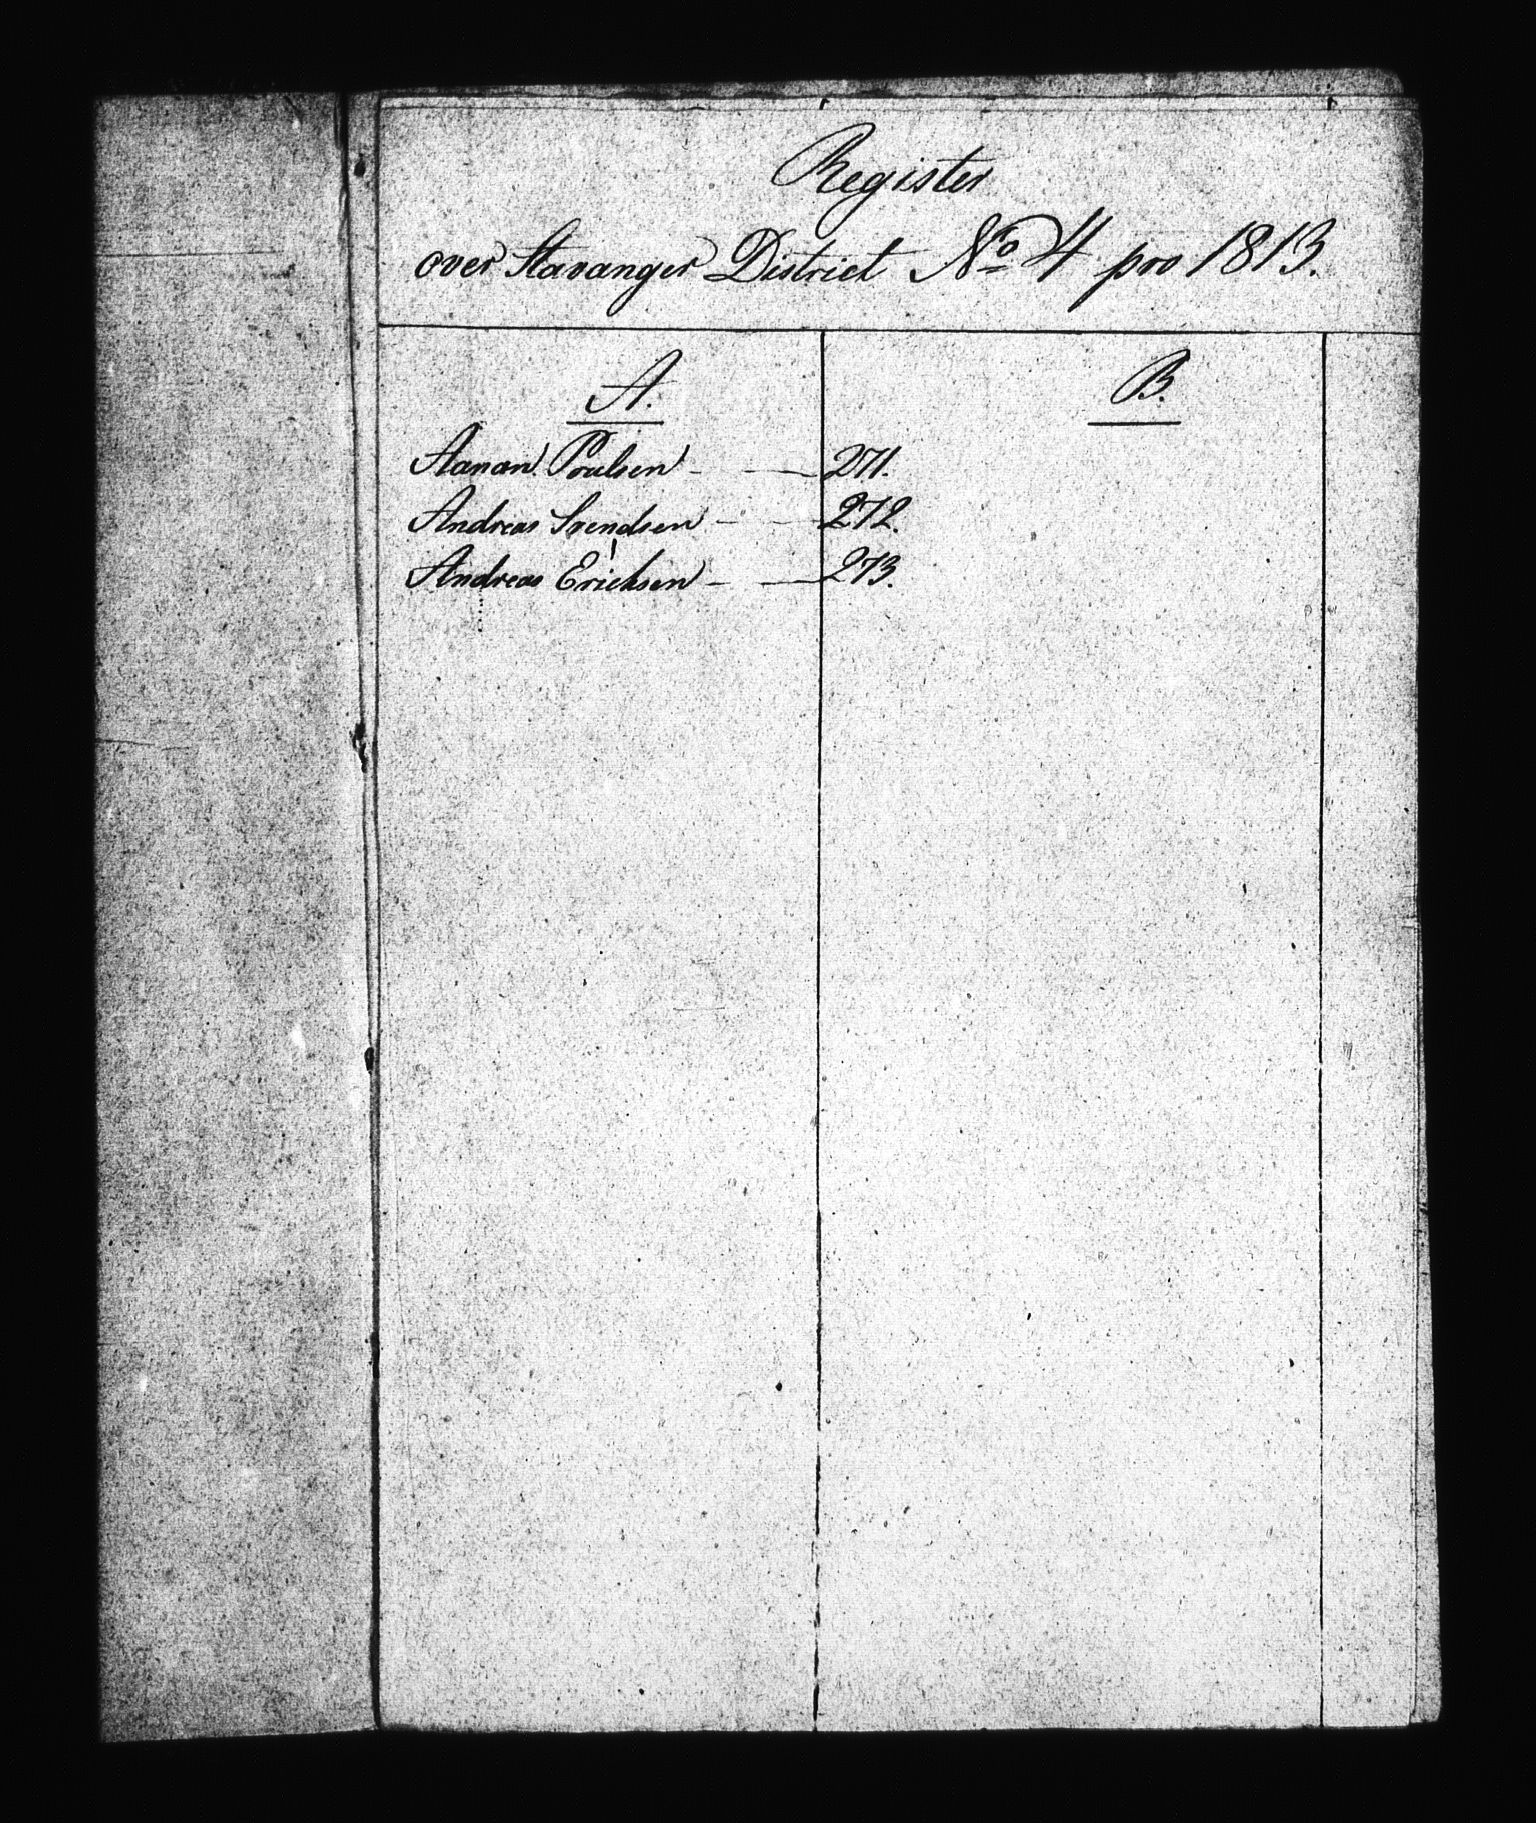 Register
over Stavanger District No 4 pro 1813.
A.
Aanan Poulsen - - 271.
Andreas Svendsen - - 272.
Andreas Ericksen - - 273.
B.